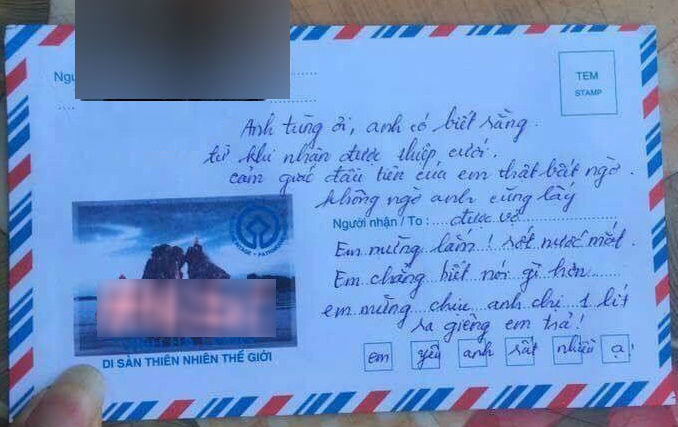 Ngư
TEM
STAMP
Anh tùng ơi, anh có biết rằng.
từ khi nhận được thiệp cưới.
cảm giác đầu tiên của em thật bất ngờ.
không ngờ anh cũng lấy
Người nhận / To : được vợ
Em mừng lắm! rớt nước mắt.
Em chẳng biết nói gì hơn
em mừng chúc anh chị 1 lít
ra giêng em trả!
DI SẢN THIÊN NHIÊN THẾ GIỚI
em yêu anh rất nhiều ạ!